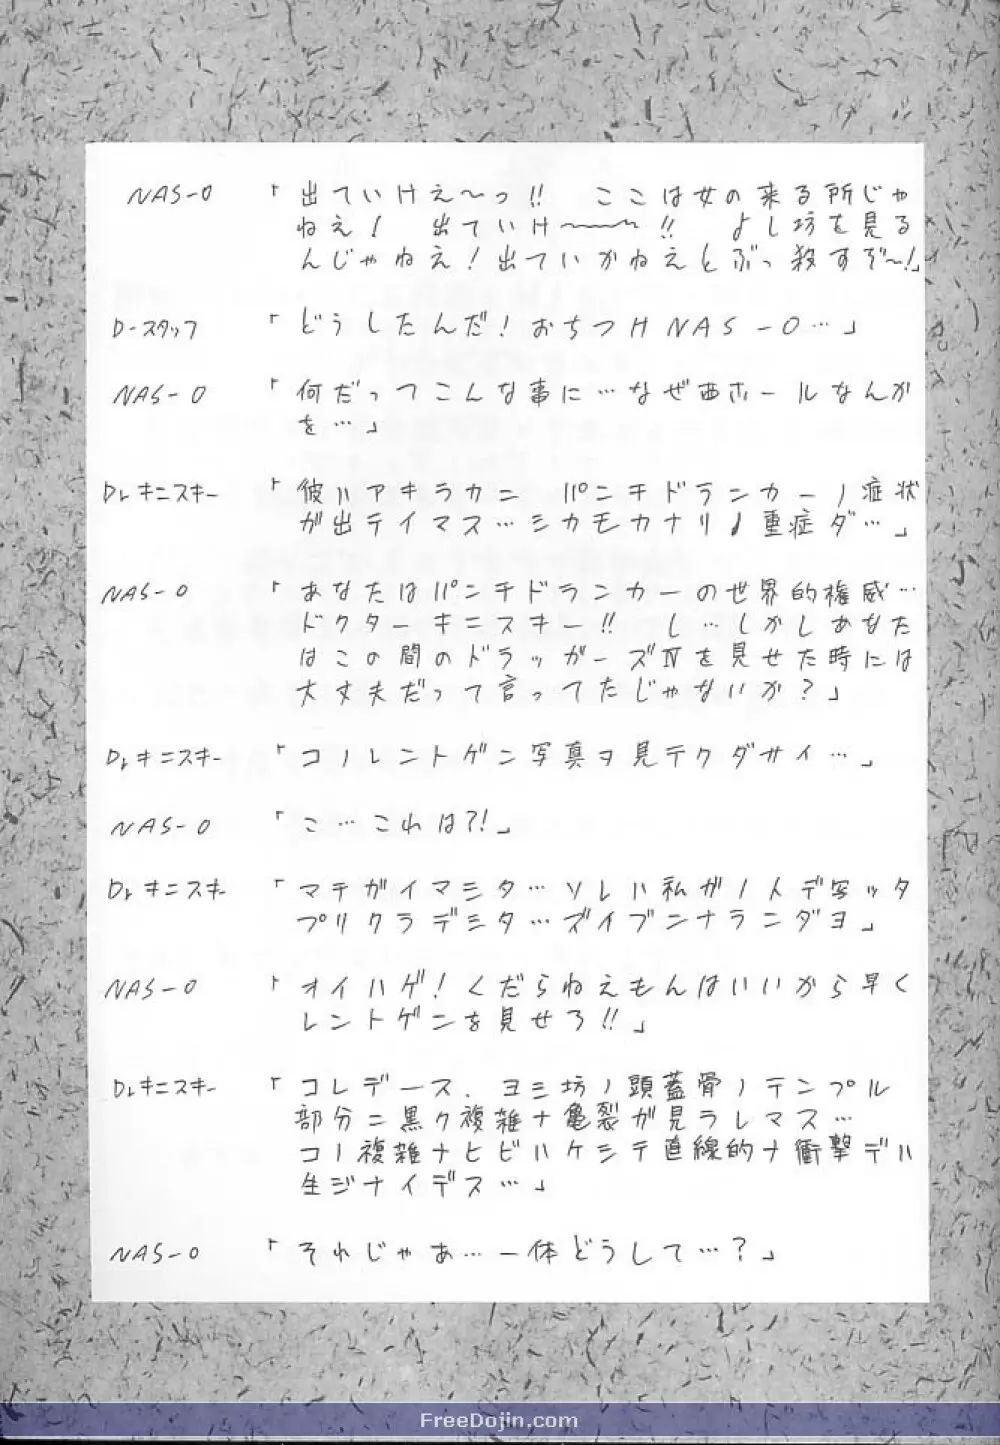 NAS-O 「出ていけえ〜っ!! ここは女の来る所じゃ
ねえ! 出ていけ〜〜〜!! よし坊を見る
んじゃねえ!出ていかねえとぶっ殺すぞ〜!」
D-スタッフ 「どうしたんだ!おちつけNAS-O…」
NAS-O 「何だってこんな事に…なぜ西ホールなんか
を…」
Dr.キニスキー 「彼ハアキラカニ パンチドランカーノ症状
が出テイマス…シカモカナリノ重症ダ…」
NAS-O 「あなたはパンチドランカーの世界的権威…
ドクターキニスキー!! し…しかしあなた
はこの間のドラッガーズⅣを見せた時には
大丈夫だって言ってたじゃないか?」
Dr.キニスキー 「コノレントゲン写真ヲ見テクダサイ…」
NAS-O 「こ…これは?!」
Dr.キニスキー 「マチガイマシタ…ソレハ私ガノトデ写ッタ
プリクラデシタ…ズイブンナランダヨ」
NAS-O 「オイハゲ!くだらねえもんはいいから早く
レントゲンを見せろ!!」
Dr.キニスキー 「コレデース.ヨシ坊ノ頭蓋骨ノテンプル
部分ニ黒ク複雑ナ亀裂が見ラレマス…
コノ複雑ナヒビハケシテ直線的ナ衝撃デハ
生ジナイデス…」
NAS-O 「それじゃあ…一体どうして…?」
FreeDojin.com